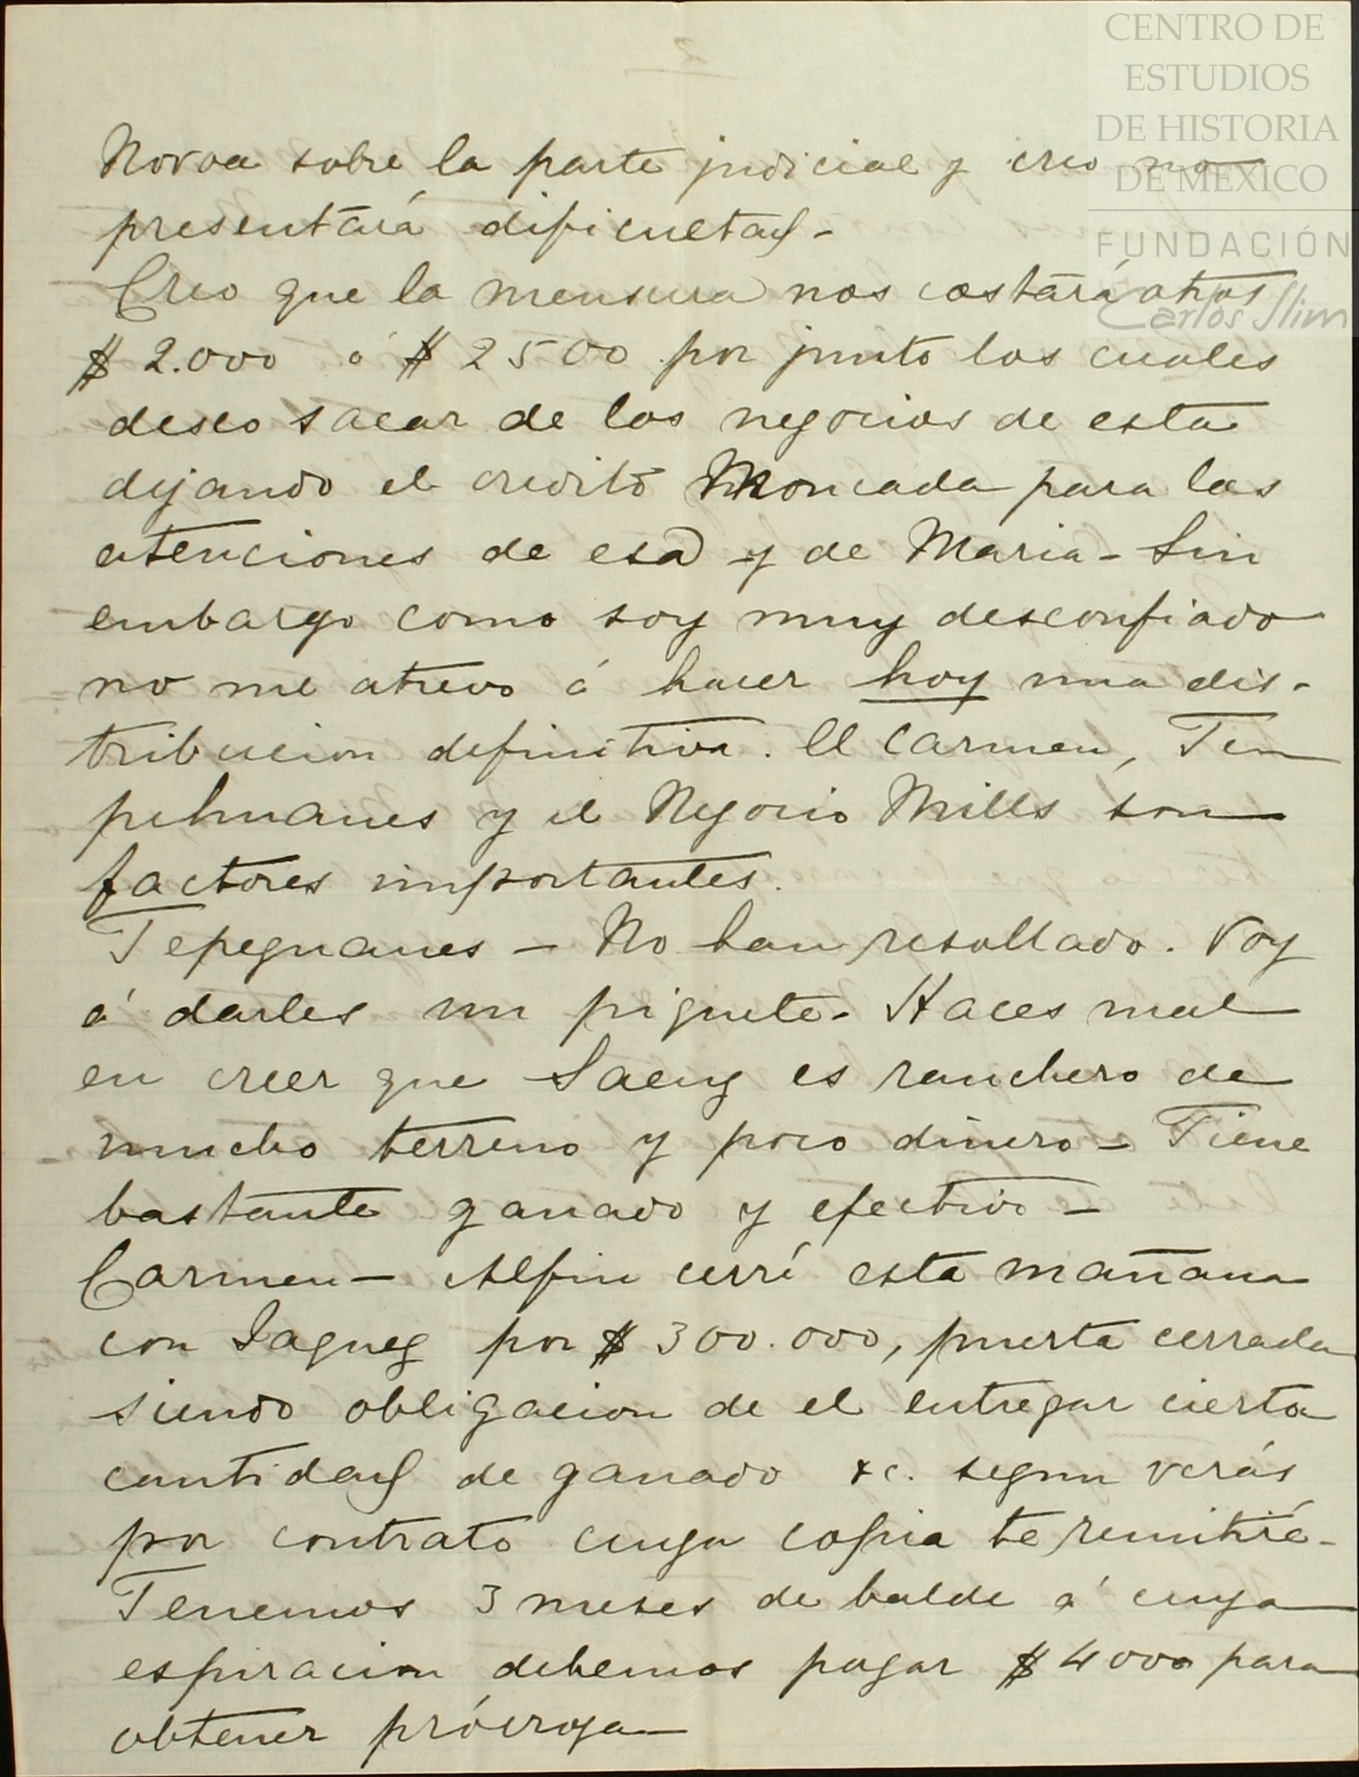 CENTRO DE
ESTUDIOS
DE HISTORIA
DE MEXICO
FUNDACIÓN
Carlos Slim
Novoa sobre la parte judicial y creo no
presentará dificultad-
Creo que la mensura nos costará otros
$ 2.000 ó $ 2500 por junto los cuales
deseo sacar de los negocios de esta
dejando el credito Moncada para las
atenciones de esa y de Maria- Sin
embargo como soy muy desconfiado
no me atrevo á hacer hoy una dis-
tribucion definitiva. El Carmen, Te
pehuanes y el Negocio Mills son
factores importantes.
Tepeguanes - No han resollado. Voy
á darles un piquete- Haces mal
en creer que Saenz es ranchero de
mucho terreno y poco dinero- Tiene
bastante ganado y efectivo-
Carmen- Alfin cerré esta mañana
con Jaquez por $ 300.000, puerta cerrada
siendo obligacion de el entregar cierta
cantidad de ganado &c. segun verás
por contrato cuya copia te remitiré-
Tenemos 3 meses de balde á cuya
espiracion debemos pagar $ 4000 para
obtener próroga-